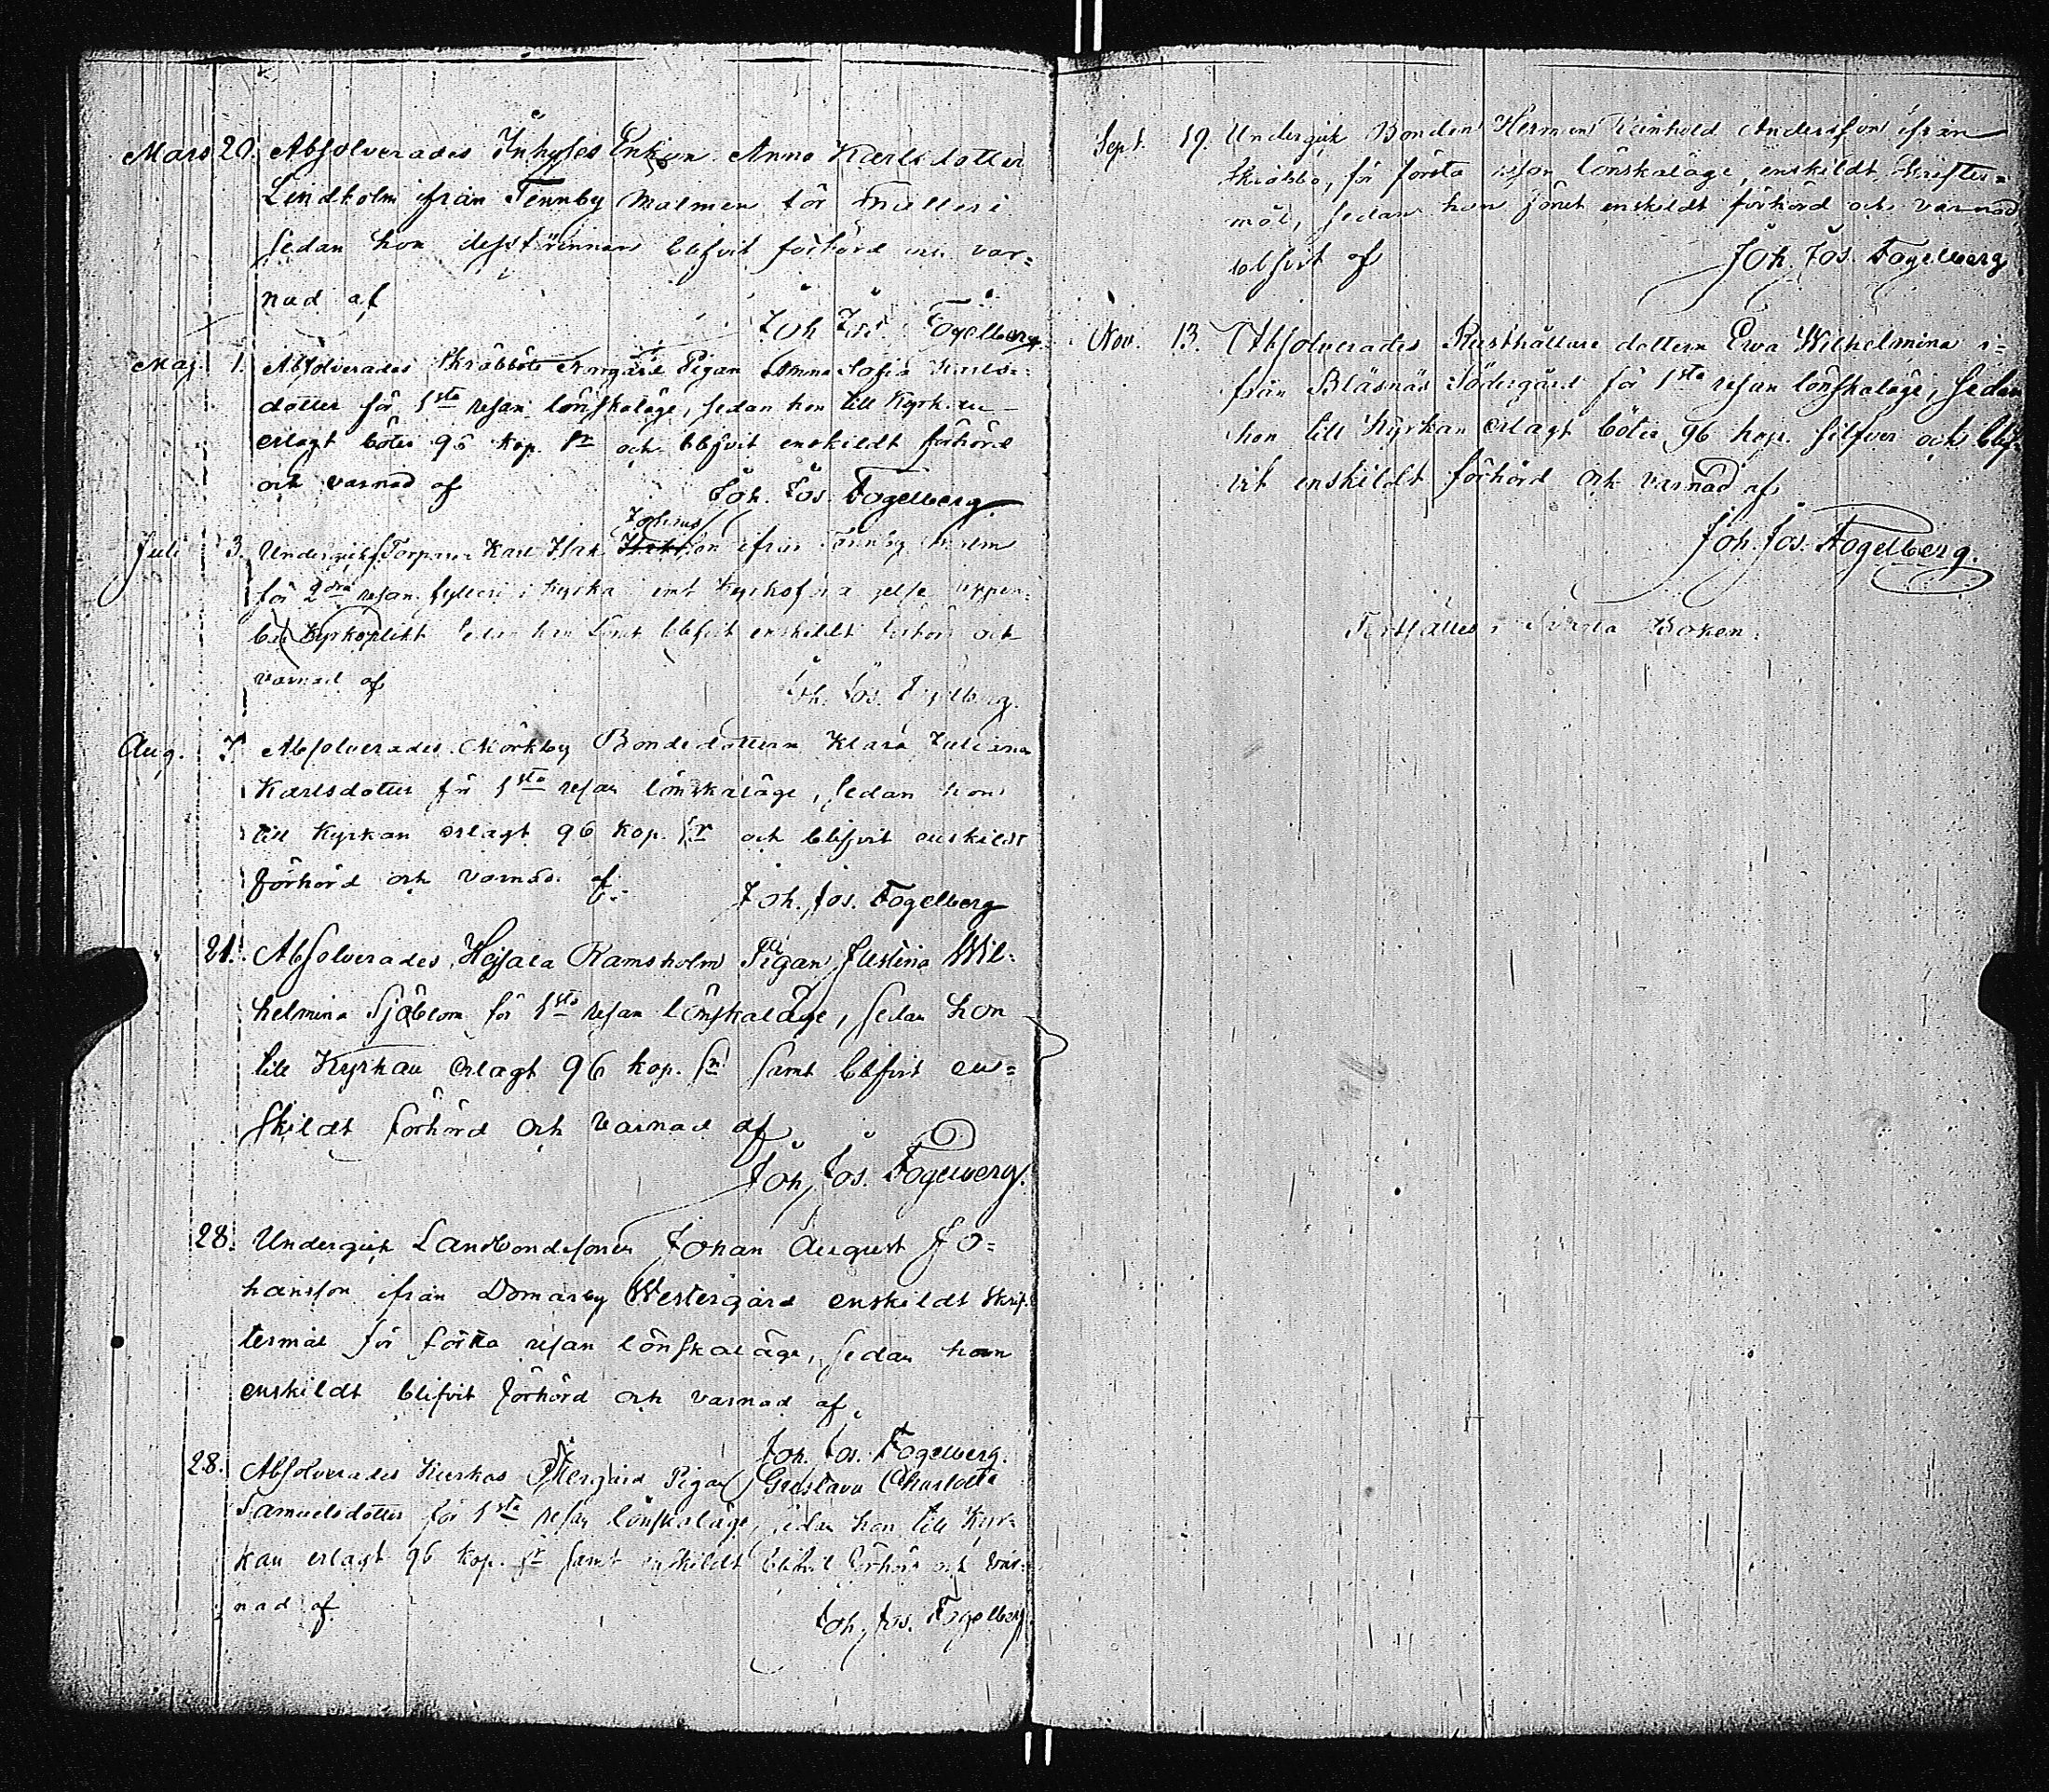 Mars 20. Absolverades Inhyses Enkan Anna Karlsdotter
Lindholm ifrån Tennby Malmen för
sedan hon dessförinnan blifvit förhörd och var=
nad af
Joh. Jos. Fogelberg.
Maj. 1. Absolverades Skräbböle Norrgård Pigan Anna Sofia Karls=
dotter för 1sta resan lönskaläge, sedan hon till Kyrkan
erlagt böter 96 kop. Sr och blifvit enskildt förhörd
och varnad af
Joh. Jos. Fogelberg.
Johans
Juli 3. Undergick Torparen Karl Isak Isaksson ifrån Tennby Malm
för 2dra resan fylleri i Kyrka uppen=
bar Kyrkoplikt sedan han blifvit enskildt förhörd och
varnad af
Joh. Jos. Fogelberg.
Aug. 7. Absolverades Mörkby Bondedottern Klara Juliana
Karlsdotter för 1sta resan lönskaläge, sedan hon
till Kyrkan erlagt 96 kop. Sr och blifvit enskildt
förhörd och varnad af.
Joh. Jos. Fogelberg
21. Absolverades Ramsholm Pigan Justina Wil=
helmina Sjöblom för 1sta resan lönskaläge, sedan hon
till Kyrkan erlagt 96 kop. Sr samt blifvit en=
skildt förhörd och varnad af
Joh. Jos. Fogelberg.
28. Undergick Landbondesonen Johan August Jo=
hansson ifrån Domarby Westergård enskildt Skrif=
termål för första resan lönskaläge, sedan han
enskildt blifvit förhörd och varnad af
Joh. Jos. Fogelberg.
28. Absolverades Kurkas Pigan Gustava Charlotta
Samuelsdotter för 1sta resan lönskaläge, sedan hon till Kyr=
kan erlagt 96 kop. Sr samt enskildt blifvit förhörd och var=
nad af
Joh. Jos. Fogelberg
Sept. 19. Undergick Bonden Herman Reinhold Andersson ifrån
Skräbbö, för första resan lönskaläge, enskildt Skrifter=
mål, sedan han enskildt förhörd och varnad
blifvit af
Joh. Jos. Fogelberg
Nov. 13. Absolverades Rusthållare dottern Ewa Wilhelmina i=
från Bläsnäs Södergård för 1sta resan lönskaläge, sedan
hon till Kyrkan erlagt böter 96 kop. silfver och blif=
vit enskildt förhörd och varnad af
Joh. Jos. Fogelberg.
Fortsättes i Svarta Boken.